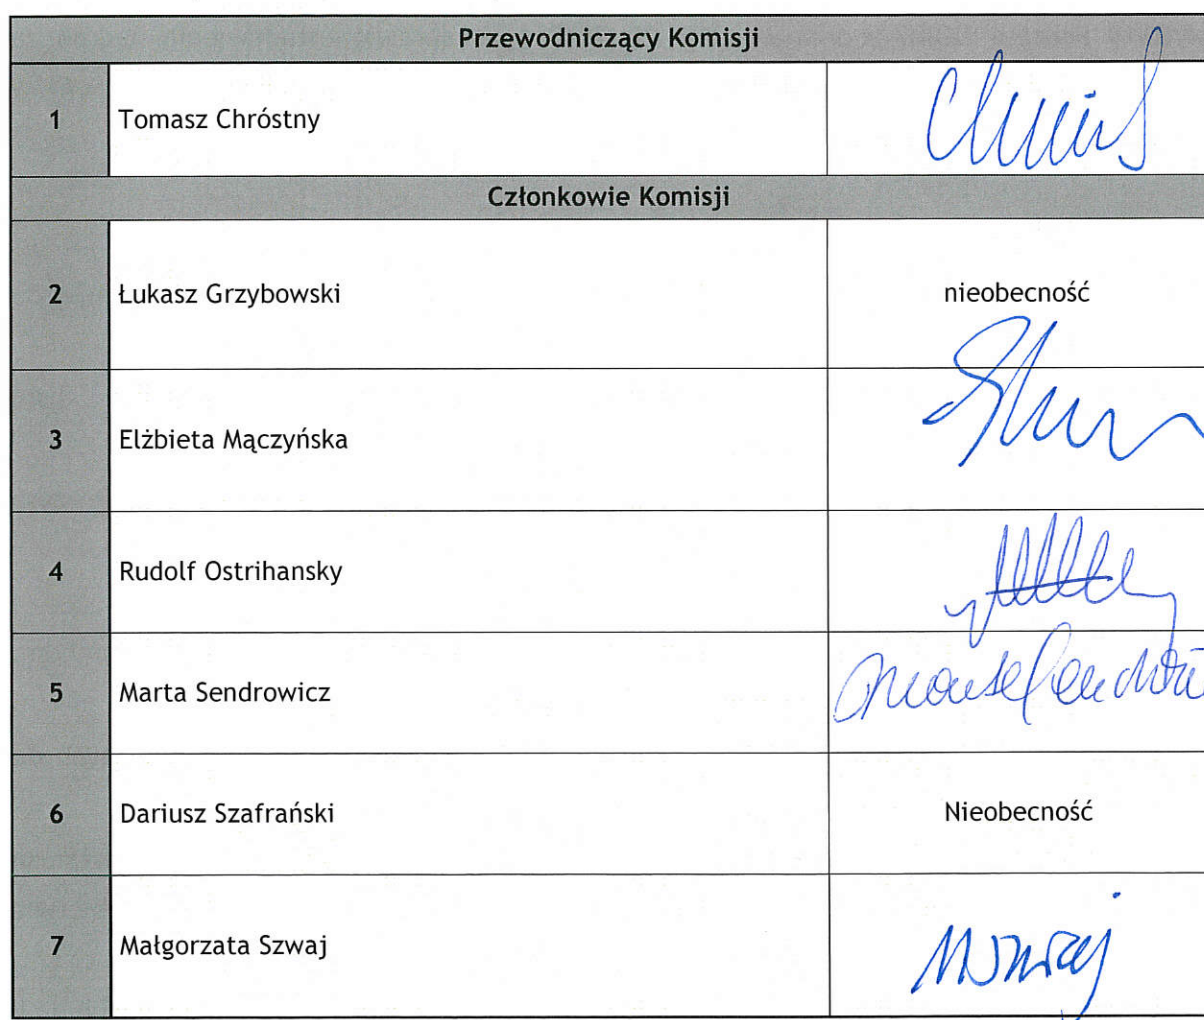 Przewodniczący Komisji
1 Tomasz Chróstny
Członkowie Komisji
2 Łukasz Grzybowski nieobecność
3 Elżbieta Mączyńska
4 Rudolf Ostrihansky
5 Marta Sendrowicz
6 Dariusz Szafrański Nieobecność
7 Małgorzata Szwaj